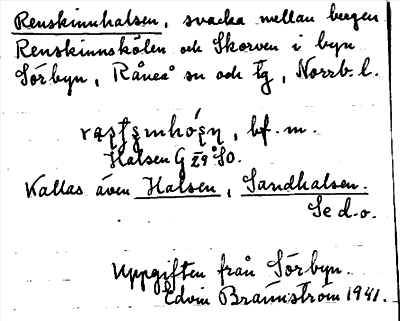 Renskinnhalsen, svacka mellan bergen
Renskinnskölen och Skorven i byn
Sörbyn, Råneå sn och tg, Norrb. l.
bf. m.
Halsen G SO.
Kallas även Halsen, Sandhalsen.
Se d. o.
Uppgiften från Sörbyn.
Edvin Brännström 1941.